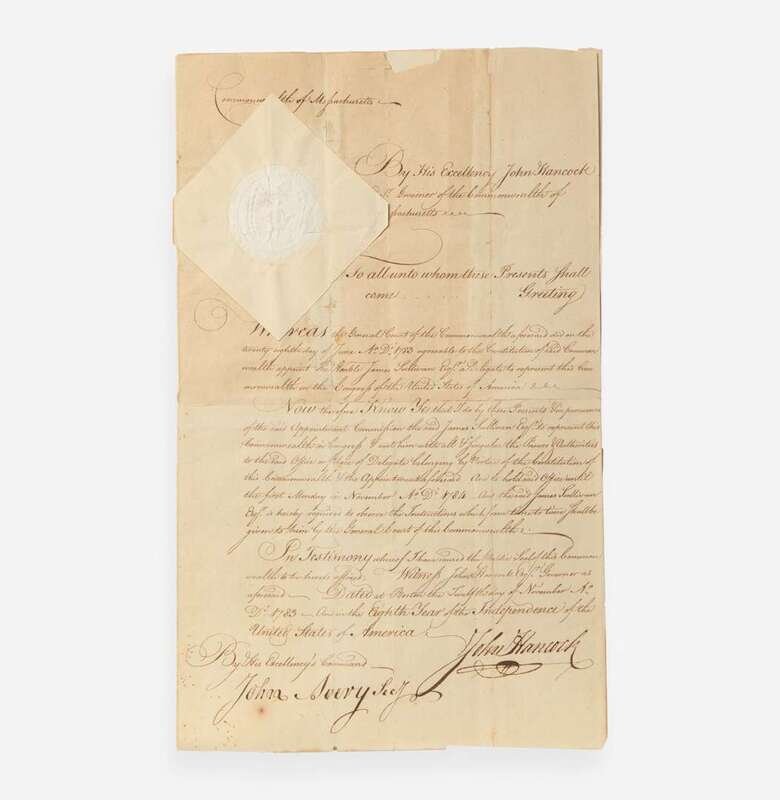 Commonwealth of Massachusetts
By His Excellency John Hancock
Esqr. Governor of the Commonwealth of
Massachusetts
To all unto whom these Presents shall
come Greeting
Whereas the General Court of the Commonwealth aforesaid did on the
twenty eighth day of June Ao. Di. 1783 agreeable to the Constitution of said Common
wealth appoint the Honble James Sullivan Esqr. a Delegate to represent this Com
monwealth in the Congress of the United States of America
Now therefore Know Ye that I do by these Presents in pursuance
of the said Appointment Commission the said James Sullivan Esqr. to represent this
Commonwealth in Congress & vest him with all & singular the Powers & Authorities
to the said Office or place of Delegate belonging by Virtue of the Constitution of
this Commonwealth & the Appointment aforesaid And to hold said Office until
the first Monday in November Ao. Di. 1784 And the said James Sullivan
Esqr. is hereby required to observe the Instructions which from time to time shall be
given to him by the General Court of the Commonwealth
In Testimony whereof I have caused the Public Seal of this Common
wealth to be hereto affixed Witness John Hancock Esqr. Governor as
aforesaid Dated at Boston the day of November Ao.
Di. 1783 And in the Eighth Year of the Independence of the
United States of America
John Hancock
By His Excellency's Command
John Avery Secy